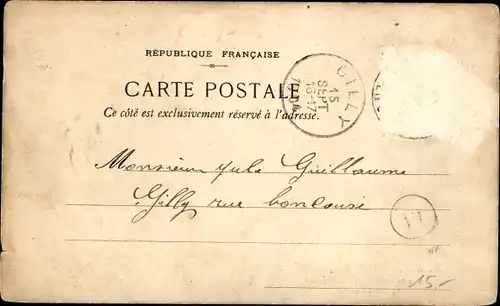 RÉPUBLIQUE FRANÇAISE
CARTE POSTALE
Ce côté est exclusivement réservé à l'adresse.
GILLY
15
SEPT
16-17
Monsieur Jule Guillaume
Gilly rue
15.-